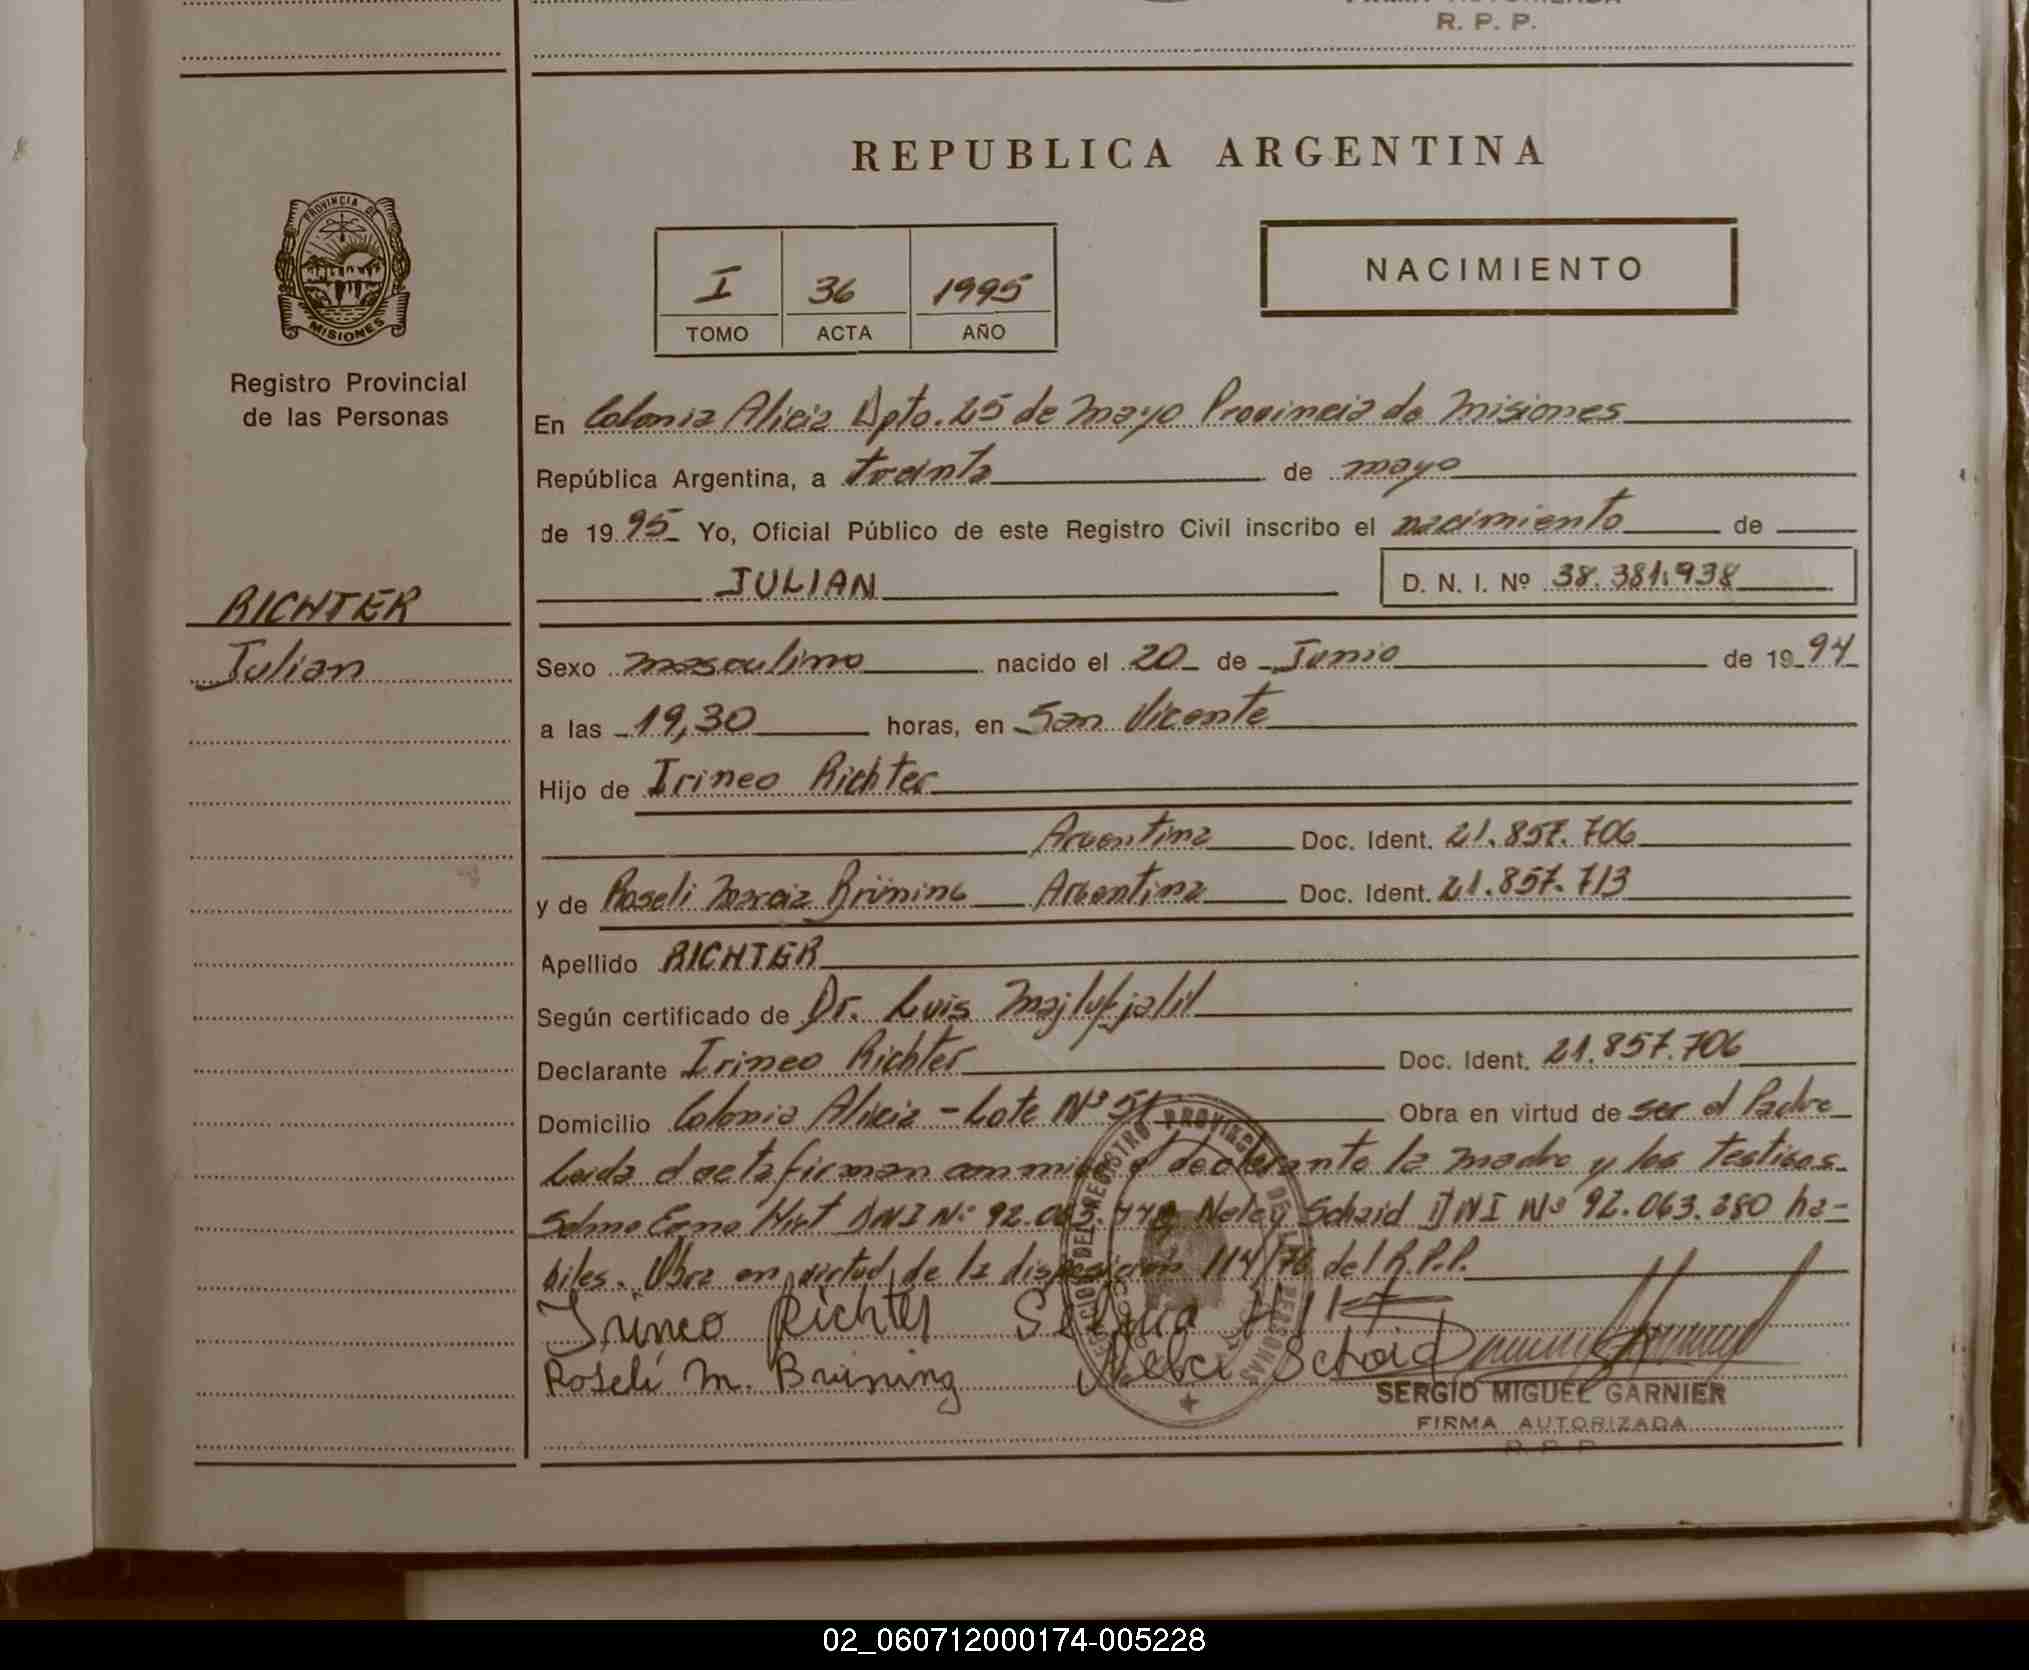 R. P. P.
REPUBLICA ARGENTINA
PROVINCIA DE
MISIONES
Registro Provincial
de las Personas
I 36 1995
TOMO ACTA AÑO
NACIMIENTO
En Colonia Alicia Dpto. 25 de mayo Provincia de Misiones
República Argentina, a treinta de mayo
de 1995 Yo, Oficial Público de este Registro Civil inscribo el nacimiento de
JULIAN D. N. I. Nº 38.381.938
RICHTER
Julian
Sexo masculino nacido el 20 de Junio de 1994
a las 19,30 horas, en San Vicente
Hijo de Irineo Richter
Argentina Doc. Ident. 21.857.706
y de Roseli Marcia Brüning Argentina Doc. Ident. 21.857.713
Apellido RICHTER
Según certificado de Dr. Luis Majlufjalil
Declarante Irineo Richter Doc. Ident. 21.857.706
Domicilio Colonia Alicia - Lote Nº 51 Obra en virtud de ser el Padre
Leida el acta firman conmigo el declarante la madre y los testigos
Selma Erna Hirt DNI Nº 92. Nelci Schaid DNI Nº 92.063.280 ha-
biles. Obra en virtud de la disposición 114/76 del R.P.P.
Irineo Richter Selma Hirt
Roseli M. Brüning Nelci Schaid
SERGIO MIGUEL GARNIER
FIRMA AUTORIZADA
R. P. P.
02_060712000174-005228